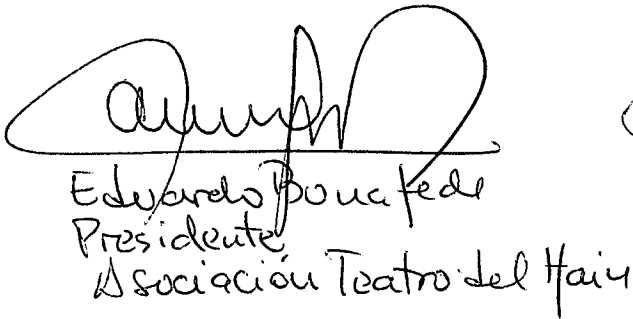 Eduardo Bonafede
Presidente
Asociación Teatro del Hain